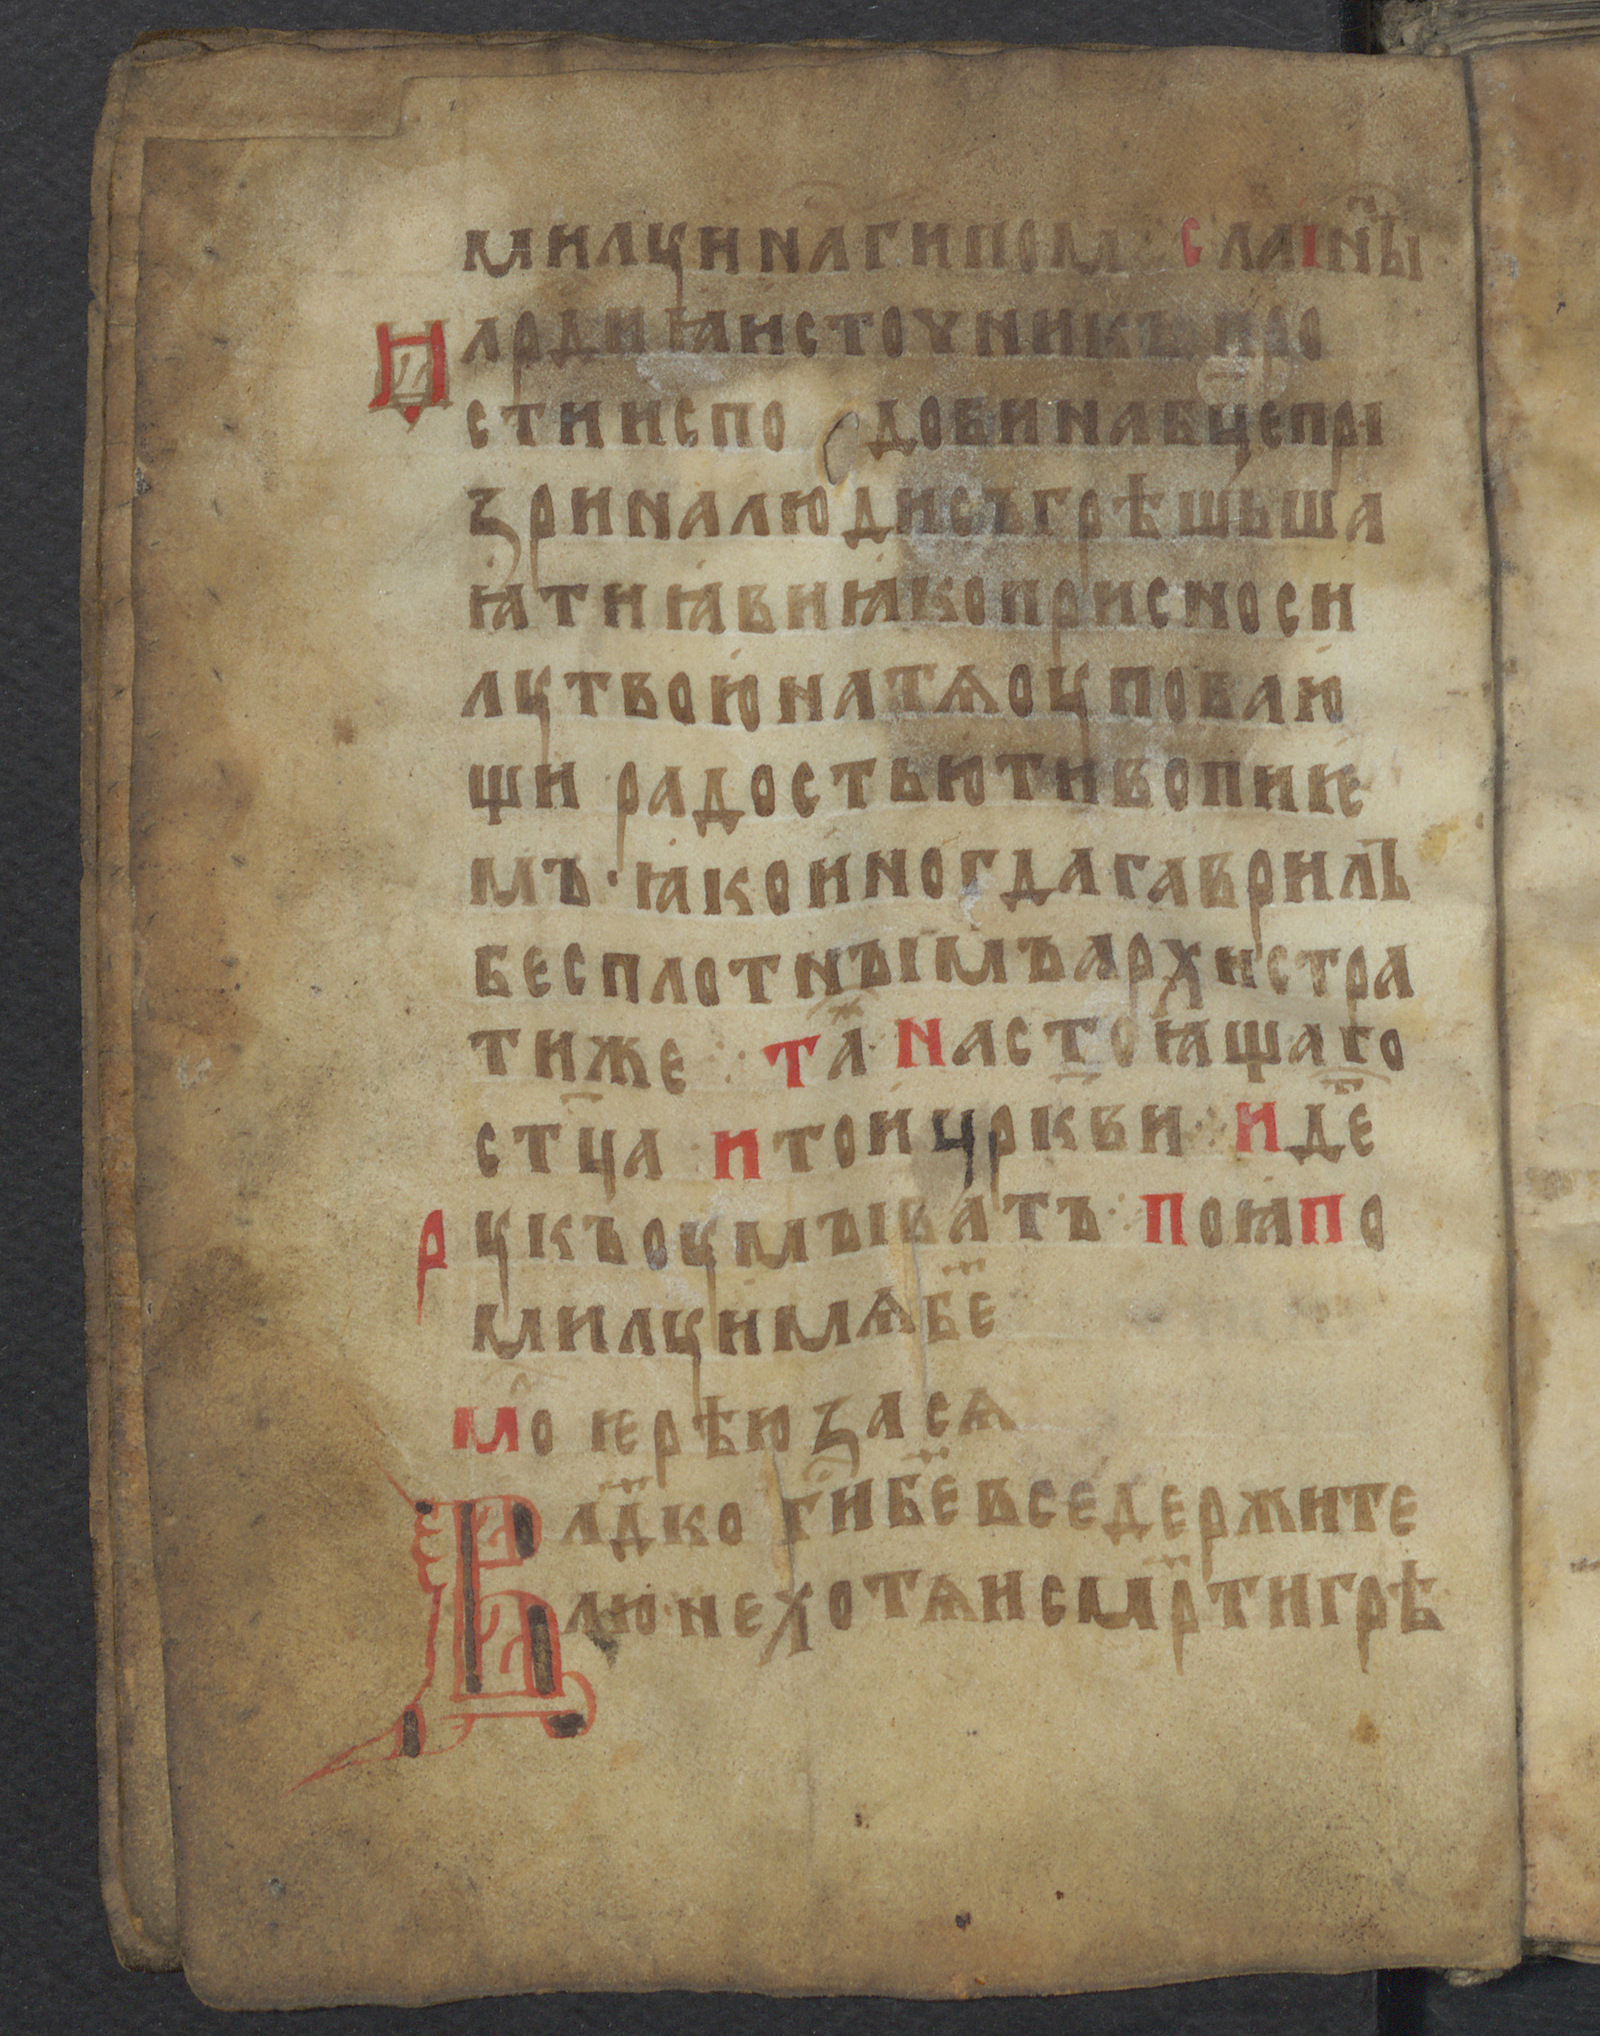 милꙋи наⷭ҇ ги пом҃ слⷶ і нн҃ꙑ
М лрдиꙗ источникъ про
сти и сподоби на вце при
зри на люди съгрѣшьша
ꙗ ти ꙗви ꙗко присно си
лꙋ твою на тѧ оꙋповаю
щи радостью ти вопиѥ
мъ · ꙗко иногда гаврилъ
бесплотнꙑмъ архистра
тиже : та҃ настоꙗщаго
ст҃ца и тои цр҃кви : иде҃
р ꙋкъ оꙋмꙑватъ : поꙗ по
милꙋи мѧ бе҃
мо҃ ѥрѣю за сѧ
В лд҃ко ги бе҃ вседержите
лю · не хотѧи см҃рти грѣ